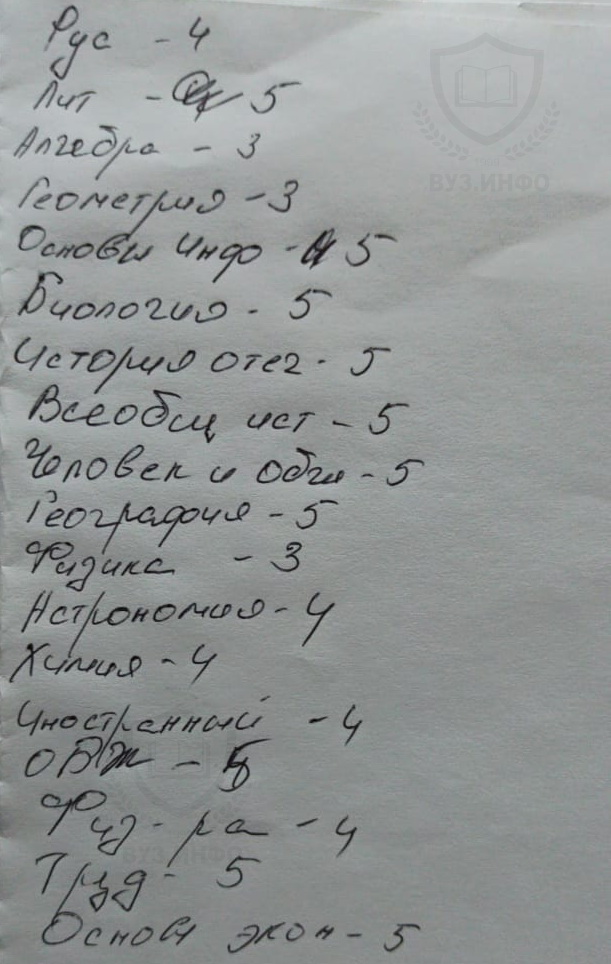 Рус - 4
Лит - 5
Алгебра - 3
Геометрия - 3
Основы инфо - 5
Биология - 5
История отеч - 5
Всеобщ ист - 5
Человек и общ - 5
География - 5
Физика - 3
Астрономия - 4
Химия - 4
Иностранный - 4
ОБЖ - 5
Физ-ра - 4
Труд - 5
Основ экон - 5
ВУЗ.ИНФО
ВУЗ.ИНФО